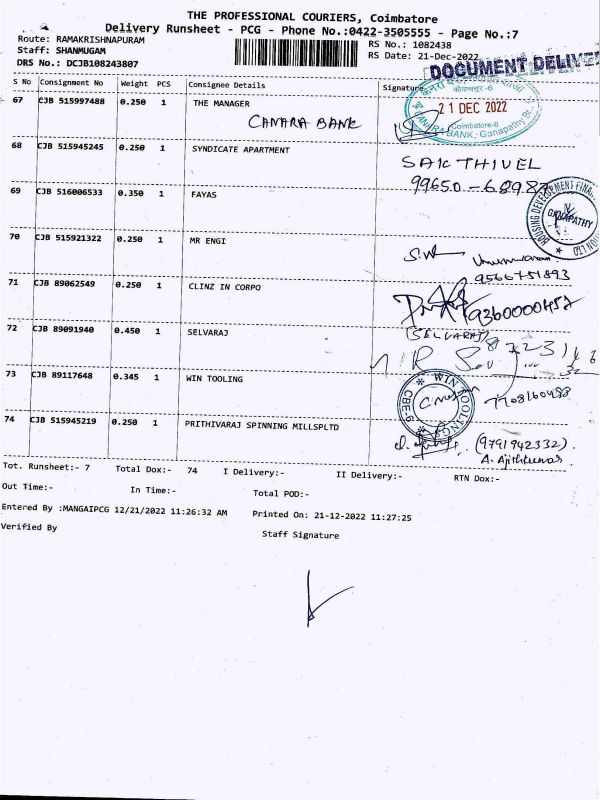 THE PROFESSIONAL COURIERS, Coimbatore
Delivery Runsheet - PCG - Phone No.:0422-3505555 - Page No.:7
Route: RAMAKRISHNAPURAM
RS No.: 1082438
Staff: SHANMUGAM
RS Date: 21-Dec-2022
DRS No.: DCJB108243807
DOCUMENT DELIVE
S No Consignment No Weight PCS Consignee Details Signature
67 CJB 515997488 0.250 1 THE MANAGER
CANARA BANK
21 DEC 2022
Coimbatore-6
CANARA BANK, Ganapathy Br.
68 CJB 515945245 0.250 1 SYNDICATE APARTMENT
SAKTHIVEL
99650-68983
69 CJB 516006533 0.350 1 FAYAS
HOUSING DEVELOPMENT FINA
GANAPATHY
70 CJB 515921322 0.250 1 MR ENGI
9566751893
71 CJB 89062549 0.250 1 CLINZ IN CORPO
9360000457
72 CJB 89091940 0.450 1 SELVARAJ
(SELVARAJ)
73 CJB 89117648 0.345 1 WIN TOOLING
WIN TOOLINGS
CBE-6
7708160498
74 CJB 515945219 0.250 1 PRITHIVARAJ SPINNING MILLSPLTD
(9791942332).
A. Ajithkumar
Tot. Runsheet:- 7 Total Dox:- 74 I Delivery:- II Delivery:- RTN Dox:-
Out Time:- In Time:- Total POD:-
Entered By :MANGAIPCG 12/21/2022 11:26:32 AM Printed On: 21-12-2022 11:27:25
Verified By Staff Signature